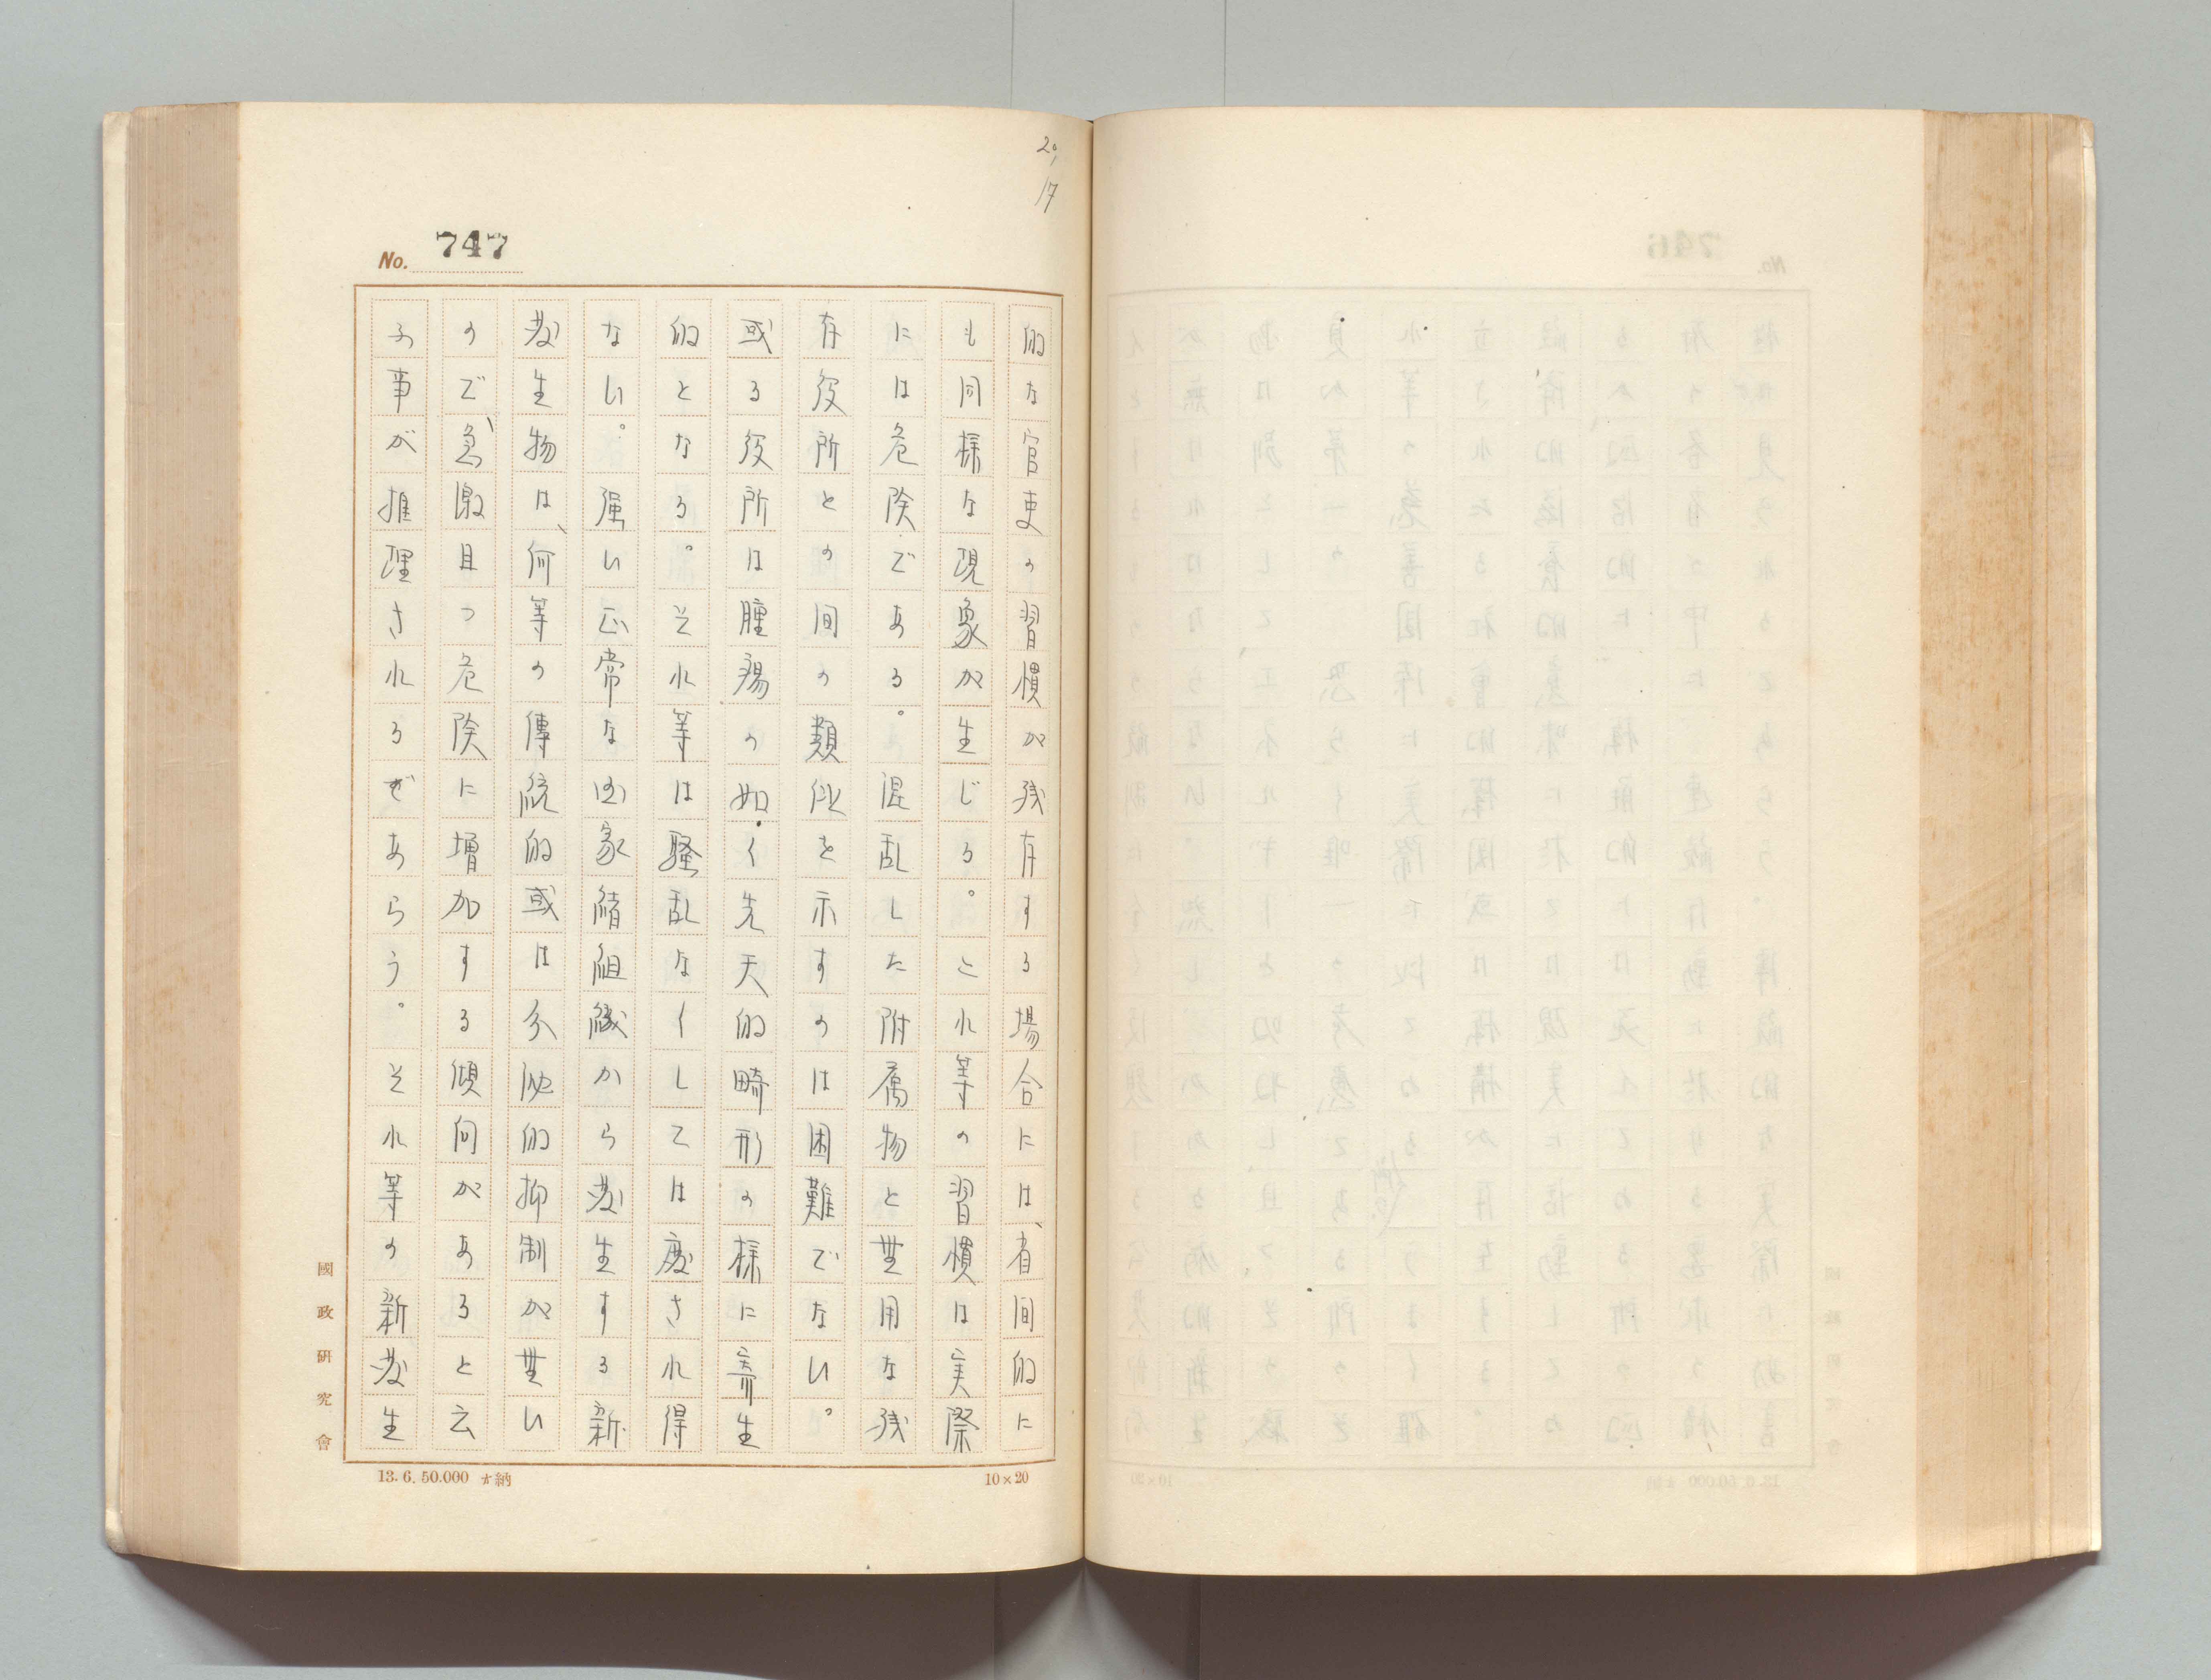 20/17
No. 747
的な官吏の習慣が残存する場合には、省間的に
も同様な現象が生じる。これ等の習慣は実際
には危険である。混乱した附属物と無用な残
存役所との間の類似を示すのは困難でない。
或る役所は腫瘍の如く先天的畸形の様に寄生
的となる。それ等は騒乱なくしては廃され得
ない。強い正常な国家諸組織から発生する新
発生物は、何等の傳統的或は分泌的抑制が無い
ので、急激且つ危険に増加する傾向があると云
ふ事が推理されるであらう。それ等の新発生
國政研究會
13.6.50.000 納
10×20